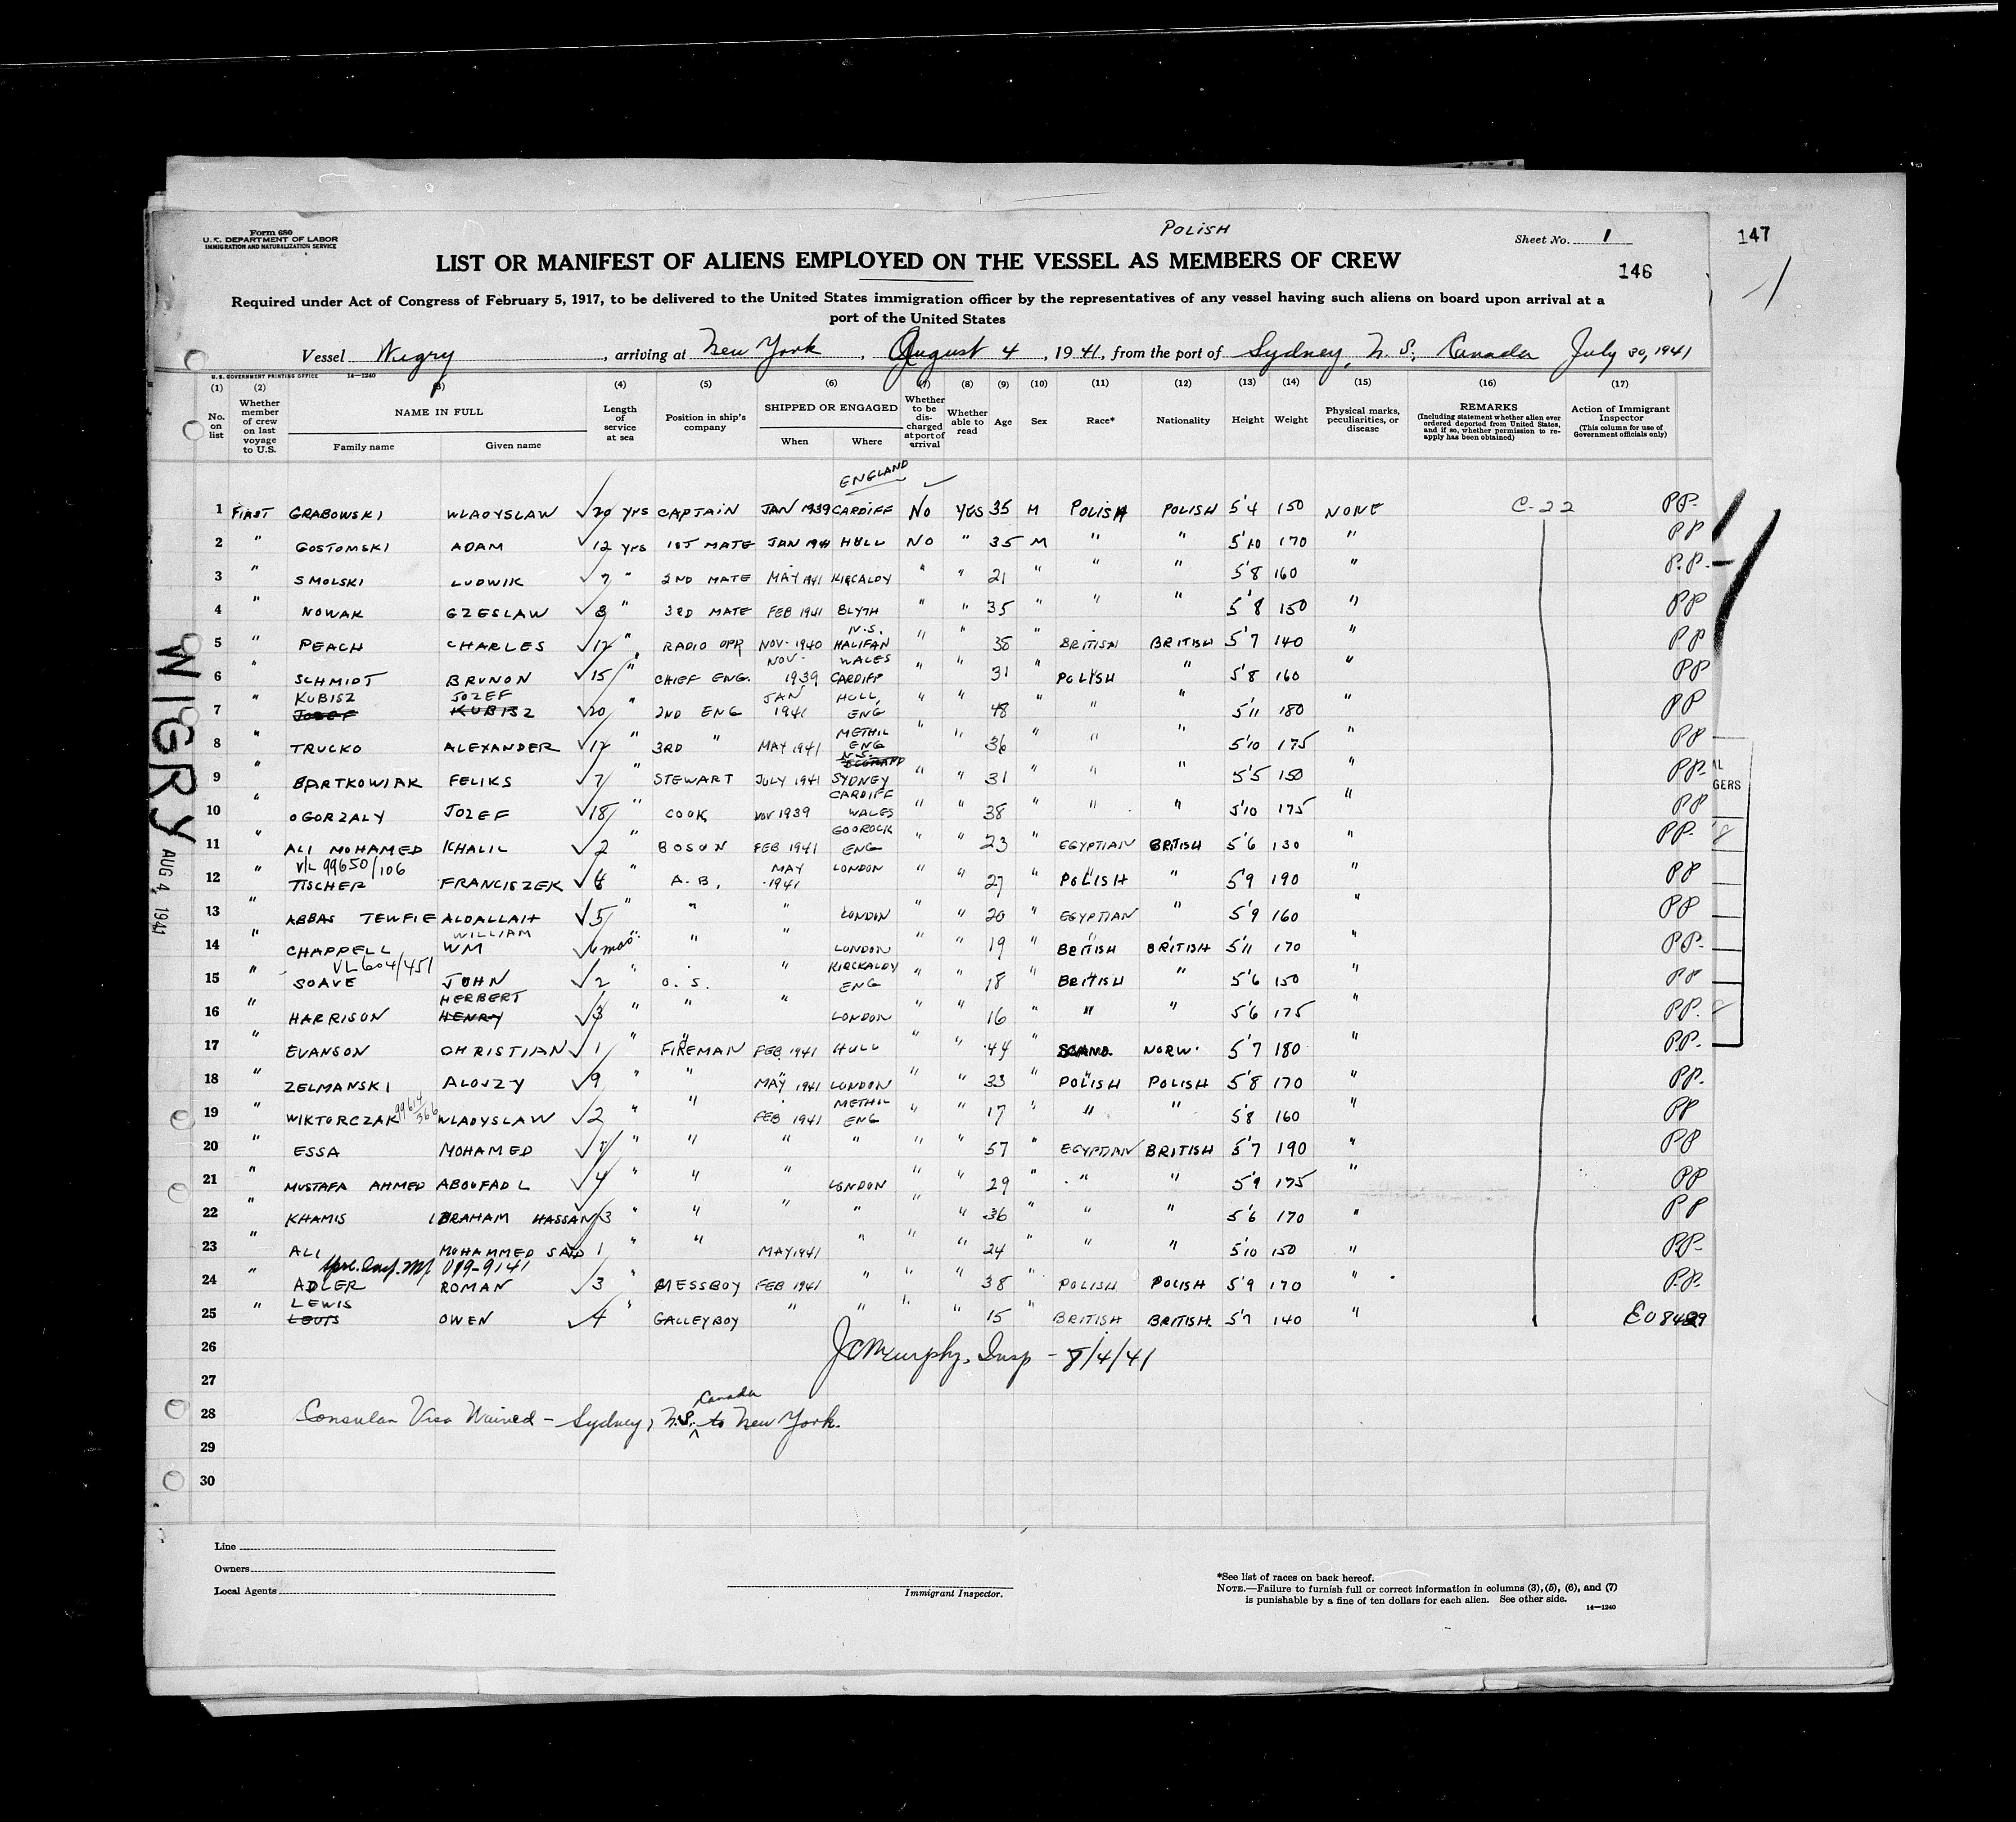 POLISH
Form 680
U. S. DEPARTMENT OF LABOR
IMMIGRATION AND NATURALIZATION SERVICE
Sheet No. 1
147
146
LIST OR MANIFEST OF ALIENS EMPLOYED ON THE VESSEL AS MEMBERS OF CREW
Required under Act of Congress of February 5, 1917, to be delivered to the United States immigration officer by the representatives of any vessel having such aliens on board upon arrival at a
port of the United States
Vessel Wigry, arriving at New York, August 4, 1941, from the port of Sydney, N. S., Canada July 30, 1941
U. S. GOVERNMENT PRINTING OFFICE 14—1240
(1) (2) (3) (4) (5) (6) (7) (8) (9) (10) (11) (12) (13) (14) (15) (16) (17)
No. on list
Whether member of crew on last voyage to U.S.
NAME IN FULL
Family name Given name
Length of service at sea
Position in ship's company
SHIPPED OR ENGAGED
When Where
Whether to be discharged at port of arrival
Whether able to read
Age
Sex
Race*
Nationality
Height
Weight
Physical marks, peculiarities, or disease
REMARKS
(Including statement whether alien ever ordered deported from United States, and if so, whether permission to reapply has been obtained)
Action of Immigrant Inspector
(This column for use of Government officials only)
ENGLAND
1 FIRST GRABOWSKI WLADYSLAW 20 yrs CAPTAIN JAN 1939 CARDIFF NO YES 35 M POLISH POLISH 5'4 150 NONE C-22 PP.
2 " GOSTOMSKI ADAM 12 yrs 1ST MATE JAN 1941 HULL NO " 35 M " " 5'10 170 " PP
3 " SMOLSKI LUDWIK 7 " 2ND MATE MAY 1941 KIRCALDY " " 21 " " " 5'8 160 " P.P.
4 " NOWAK GZESLAW 8 " 3RD MATE FEB 1941 BLYTH " " 35 " " " 5'8 150 " PP
5 " PEACH CHARLES 12 " RADIO OPR NOV. 1940 N.S. HALIFAN " " 38 " BRITISH BRITISH 5'7 140 " PP
6 " SCHMIDT BRUNON 15 " CHIEF ENG. NOV. 1939 WALES CARDIFF " " 31 POLISH " 5'8 160 " PP
7 " KUBISZ JOZEF JOZEF KUBISZ 20 " 2ND ENG JAN 1941 HULL, ENG " " 48 " " " 5'11 180 " PP
8 " TRUCKO ALEXANDER 12 " 3RD " MAY 1941 METHIL ENG " " 36 " " " 5'10 175 " PP
9 " BARTKOWIAK FELIKS 7 " STEWART JULY 1941 N.S. SYDNEY " " 31 " " " 5'5 150 " PP.
10 " OGORZALY JOZEF 18 " COOK NOV 1939 CARDIFF WALES " " 38 " " " 5'10 175 " PP
11 " ALI MOHAMED KHALIL 2 " BOSUN FEB 1941 GOOROCK ENG " " 23 " EGYPTIAN BRITISH 5'6 130 " PP.
V/L 99650/106
12 " TISCHER FRANCISZEK 8 " A.B. MAY 1941 LONDON " " 27 " POLISH " 5'9 190 " PP
13 " ABBAS TEWFIE ALDALLAH 5 " " " LONDON " " 20 " EGYPTIAN " 5'9 160 " PP
14 " CHAPPELL WILLIAM WM 6 mos " " LONDON " " 19 " BRITISH BRITISH 5'11 170 " PP.
VL 604/451
15 " SOAVE JOHN 2 " O. S. " KIRCKALDY ENG " " 18 " BRITISH " 5'6 150 " PP
16 " HARRISON HERBERT HENRY 3 " " " LONDON " " 16 " " " 5'6 175 " PP.
17 " EVANSON CHRISTIAN 1 " FIREMAN FEB. 1941 HULL " " 44 " SCAND. NORW. 5'7 180 " P.P.
18 " ZELMANSKI ALOJZY 9 " " MAY 1941 LONDON " " 33 " POLISH POLISH 5'8 170 " PP.
19 " WIKTORCZAK 99614/366 WLADYSLAW 2 " " FEB 1941 METHIL ENG " " 17 " " " 5'8 160 " PP
20 " ESSA MOHAMED " " " " " " 57 " EGYPTIAN BRITISH 5'7 190 " PP
21 " MUSTAFA AHMED ABOUFADL 4 " " " LONDON " 29 " " " 5'9 175 " PP
22 " KHAMIS IBRAHAM HASSAN 3 " " " " " " 36 " " " 5'6 170 " PP
23 " ALI MOHAMMED SAID 1 " " MAY 1941 " " " 24 " " " 5'10 150 " PP.
24 " ADLER ROMAN 3 " MESSBOY FEB 1941 " " " 38 " POLISH POLISH 5'9 170 " P.P.
25 " LEWIS OWEN 4 " GALLEYBOY " " " " 15 " BRITISH BRITISH. 5'7 140 "
26 JC Murphy, Insp - 8/4/41
27
28 Consular Visa Waived - Sydney, N.S. Canada to New York.
29
30
WIGRY
AUG 4 1941
AL
GERS
Line
Owners
Local Agents
Immigrant Inspector.
*See list of races on back hereof.
NOTE.—Failure to furnish full or correct information in columns (3), (5), (6), and (7)
is punishable by a fine of ten dollars for each alien. See other side.
14—1240